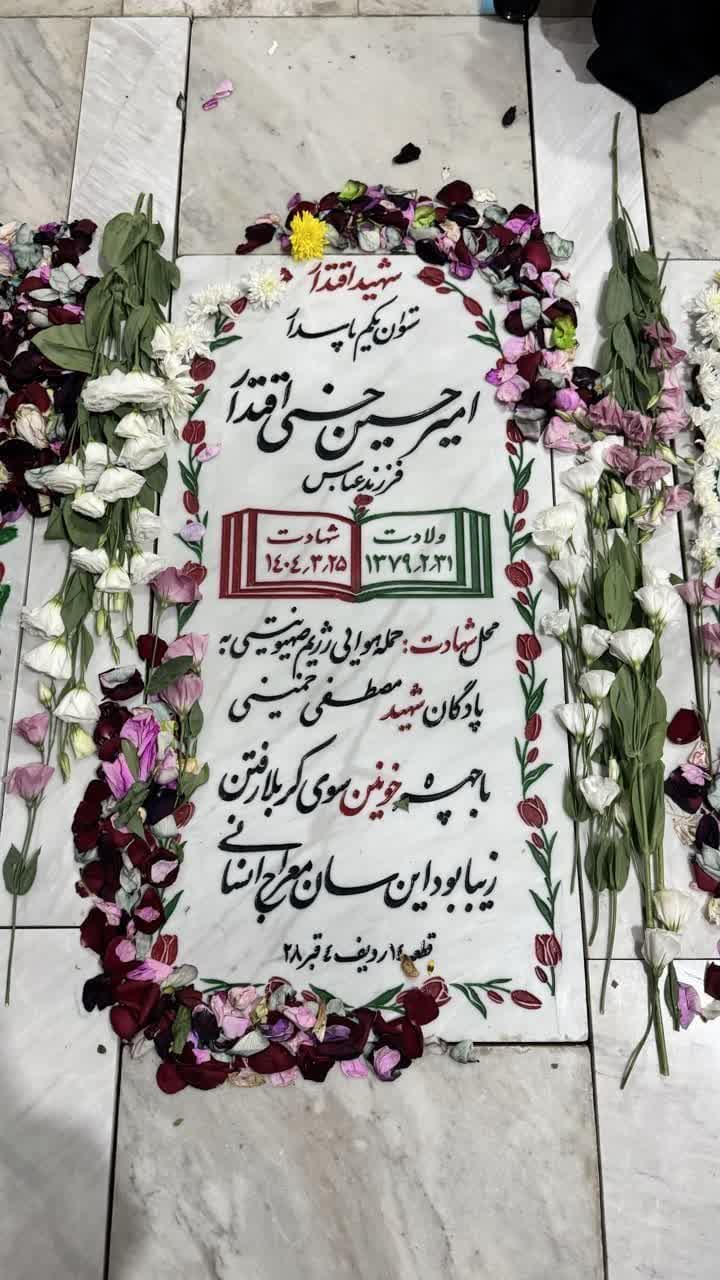 شهید اقتدار
ستوان یکم پاسدار
امیرحسین حسنی اقتدار
فرزند عباس
ولادت
۱۳۷۹٫۲٫۳۱
شهادت
۱۴۰۴٫۳٫۲۵
محل شهادت: حمله هوایی رژیم صهیونیستی به
پادگان شهید مصطفی خمینی
با چهره خونین سوی کربلا رفتن
زیبا بود این سان معراج انسانی
قطعه ۱۴ ردیف ۴ قبر ۲۸